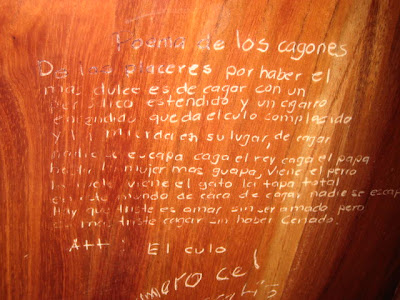 Poema de los cagones
De los placeres por haber el
mas dulce es de cagar con un
periodico estendido y un cigarro
encendido queda el culo complacido
y la mierda en su lugar, de cagar
nadie se escapa caga el rey caga el papa
hasta la mujer mas guapa, viene el perro
lo huele viene el gato lo tapa total
en este mundo de caca de cagar nadie se escapa
Hay que triste es amar sin ser amado pero
mas triste cagar sin haber cenado.
Att: El culo
numero cel